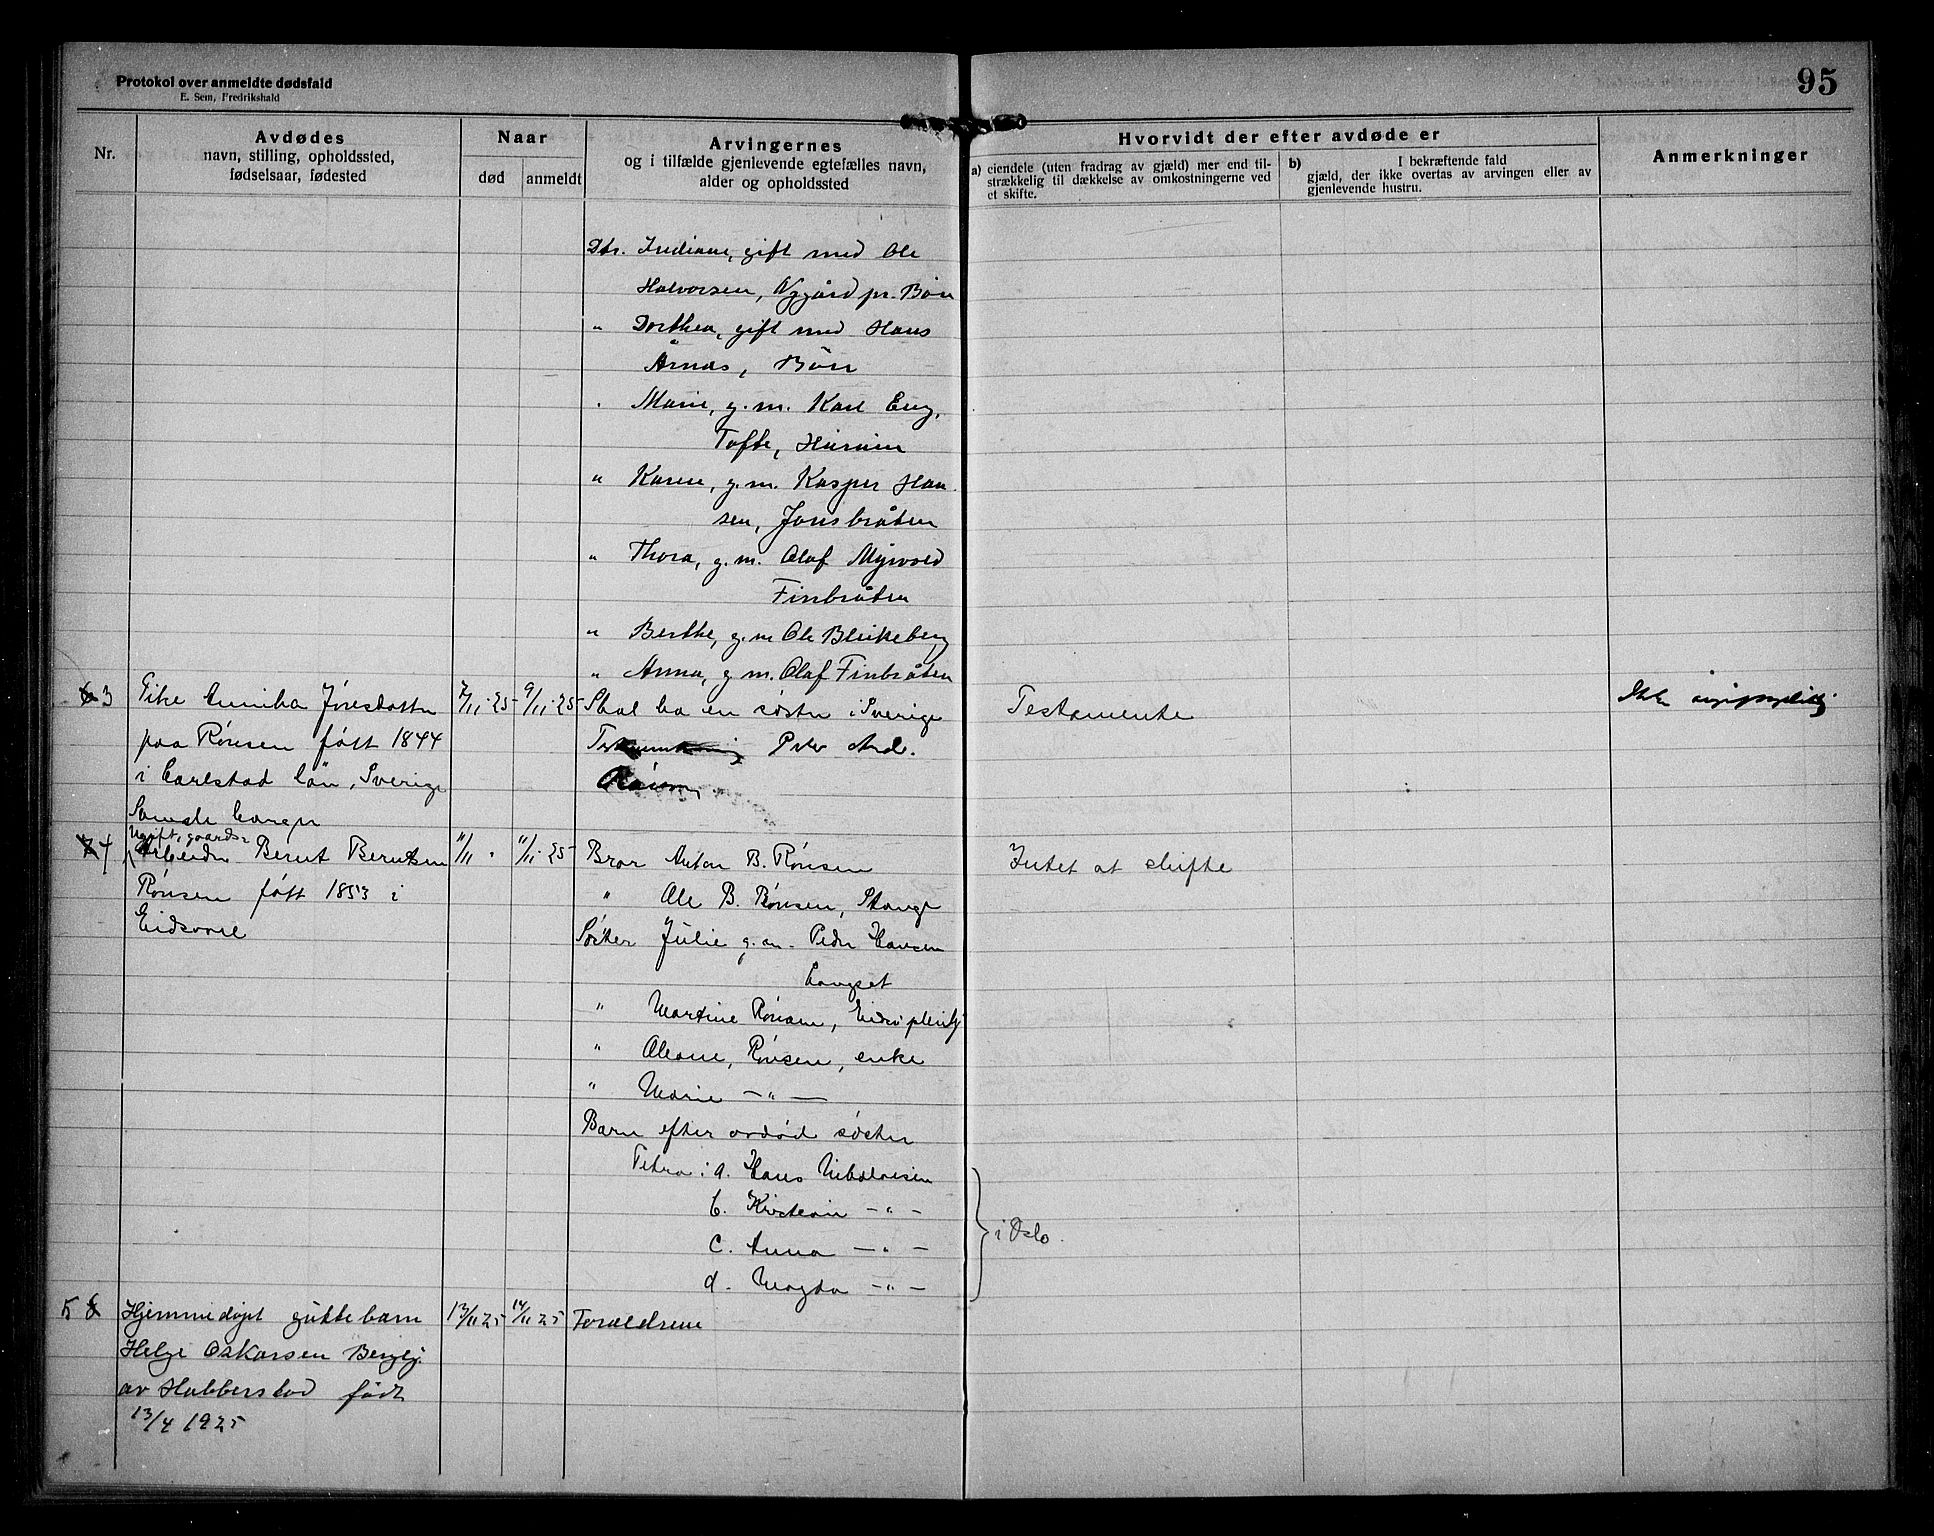 Protokol over anmeldte dødsfald
E. Sem, Fredrikshald
95
Nr.
Avdødes
navn, stilling, opholdssted,
fødselsaar, fødested
Naar
død
anmeldt
Arvingernes
og i tilfælde gjenlevende egtefælles navn,
alder og opholdssted
Hvorvidt der efter avdøde er
a) eiendele (uten fradrag av gjæld) mer end til-
strækkelig til dækkelse av omkostningerne ved
et skifte.
b) I bekræftende fald
gjæld, der ikke overtas av arvingen eller av
gjenlevende hustru.
Anmerkninger
Dtr. Indiane, gift med Ole
Halvorsen, Nygård pr. Bøn
" Dorthea, gift med Hans
Årnæs, Bøn
" Marie, g.m. Karl Eng,
Tofte, Hurum
" Karen, g.m. Kasper Han
sen, Jonsbråten
" Thora, g.m. Olaf Myrvold
Finbråten
" Berthe, g.m Ole Blekeberg
" Anna, g m. Olaf Finbråten
3
Pike Annika Jónsdatter
paa Rønsen født 1844
i Carlstad län, Sverige
7/11.25
9/11.25
Skal ha en søster i Sverige
Peter And.
Rønsen
Testamente
Ikke
4
Ugift, gaards-
Arbeider Bernt Berntsen
Rønsen født 1853 i
Eidsvoll
11/11 "
11/11.25
Bror Anton B. Rønsen
" Ole B. Rønsen, Stange
Søster Julie g.m. Peder Hansen
Langset
" Martine Rønsen,
" Oleane, Rønsen, enke
" Marie — " —
Barn efter avdød søster
Petra: a. Hans Nikolaisen
b. Kristian — " —
c. Anna — " —
d. Magda — " —
i Oslo.
Intet at skifte
5
Hjemmedøpt guttebarn
Helge Oskarsen
av Habberstad født
13/4 1925
13/11 25
14/11 25
Forældrene